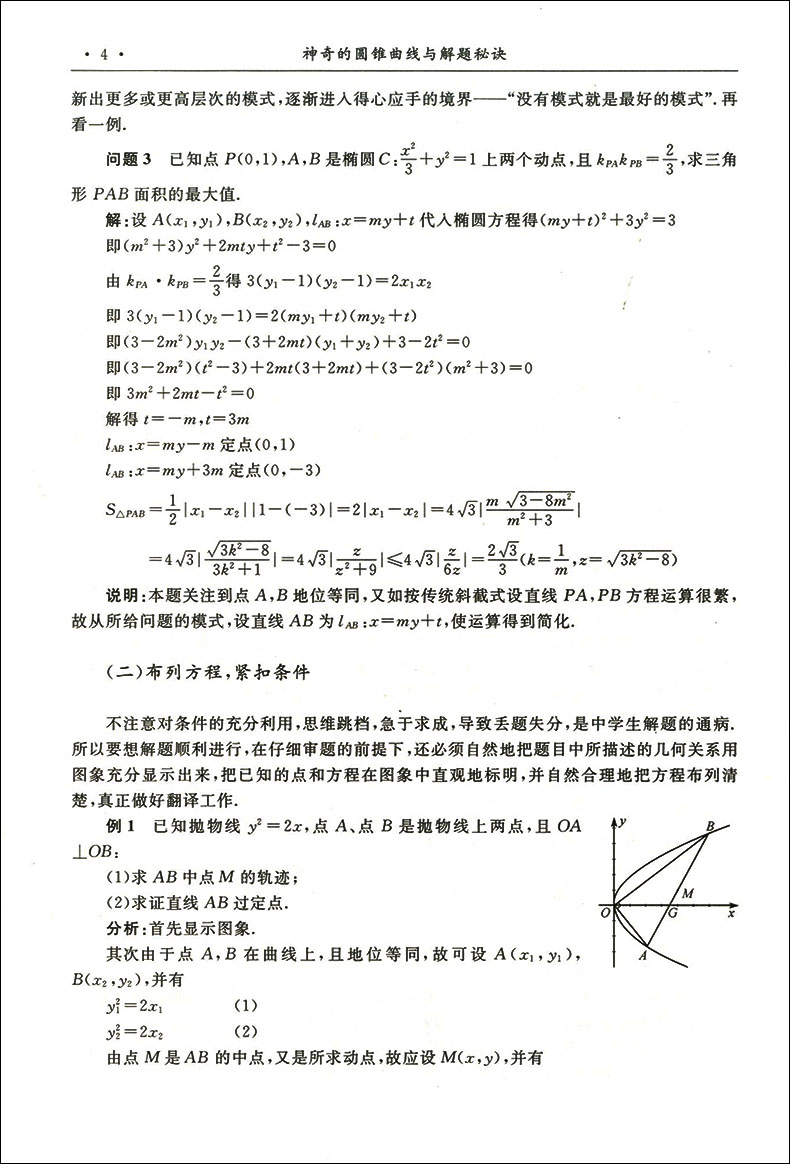 · 4 · 神奇的圆锥曲线与解题秘诀
新出更多或更高层次的模式,逐渐进入得心应手的境界——“没有模式就是最好的模式”.再
看一例.
问题 3 已知点 P(0,1),A,B 是椭圆 C:x²/3+y²=1 上两个动点,且 k_PA k_PB=2/3,求三角
形 PAB 面积的最大值.
解:设 A(x₁,y₁),B(x₂,y₂),l_AB:x=my+t 代入椭圆方程得(my+t)²+3y²=3
即(m²+3)y²+2mty+t²-3=0
由 k_PA·k_PB=2/3得 3(y₁-1)(y₂-1)=2x₁x₂
即 3(y₁-1)(y₂-1)=2(my₁+t)(my₂+t)
即(3-2m²)y₁y₂-(3+2mt)(y₁+y₂)+3-2t²=0
即(3-2m²)(t²-3)+2mt(3+2mt)+(3-2t²)(m²+3)=0
即 3m²+2mt-t²=0
解得 t=-m,t=3m
l_AB:x=my-m 定点(0,1)
l_AB:x=my+3m 定点(0,-3)
S△PAB=1/2|x₁-x₂||1-(-3)|=2|x₁-x₂|=4√3|m√(3-8m²)/(m²+3)|
=4√3|√(3k²-8)/(3k²+1)|=4√3|z/(z²+9)|≤4√3|z/6z|=2√3/3(k=1/m,z=√(3k²-8))
说明:本题关注到点 A,B 地位等同,又如按传统斜截式设直线 PA,PB 方程运算很繁,
故从所给问题的模式,设直线 AB 为 l_AB:x=my+t,使运算得到简化.
(二)布列方程,紧扣条件
不注意对条件的充分利用,思维跳档,急于求成,导致丢题失分,是中学生解题的通病.
所以要想解题顺利进行,在仔细审题的前提下,还必须自然地把题目中所描述的几何关系用
图象充分显示出来,把已知的点和方程在图象中直观地标明,并自然合理地把方程布列清
楚,真正做好翻译工作.
例 1 已知抛物线 y²=2x,点 A、点 B 是抛物线上两点,且 OA
⊥OB:
(1)求 AB 中点 M 的轨迹;
(2)求证直线 AB 过定点.
分析:首先显示图象.
其次由于点 A,B 在曲线上,且地位等同,故可设 A(x₁,y₁),
B(x₂,y₂),并有
y₁²=2x₁ (1)
y₂²=2x₂ (2)
由点 M 是 AB 的中点,又是所求动点,故应设 M(x,y),并有
y
B
M
O
G
x
A